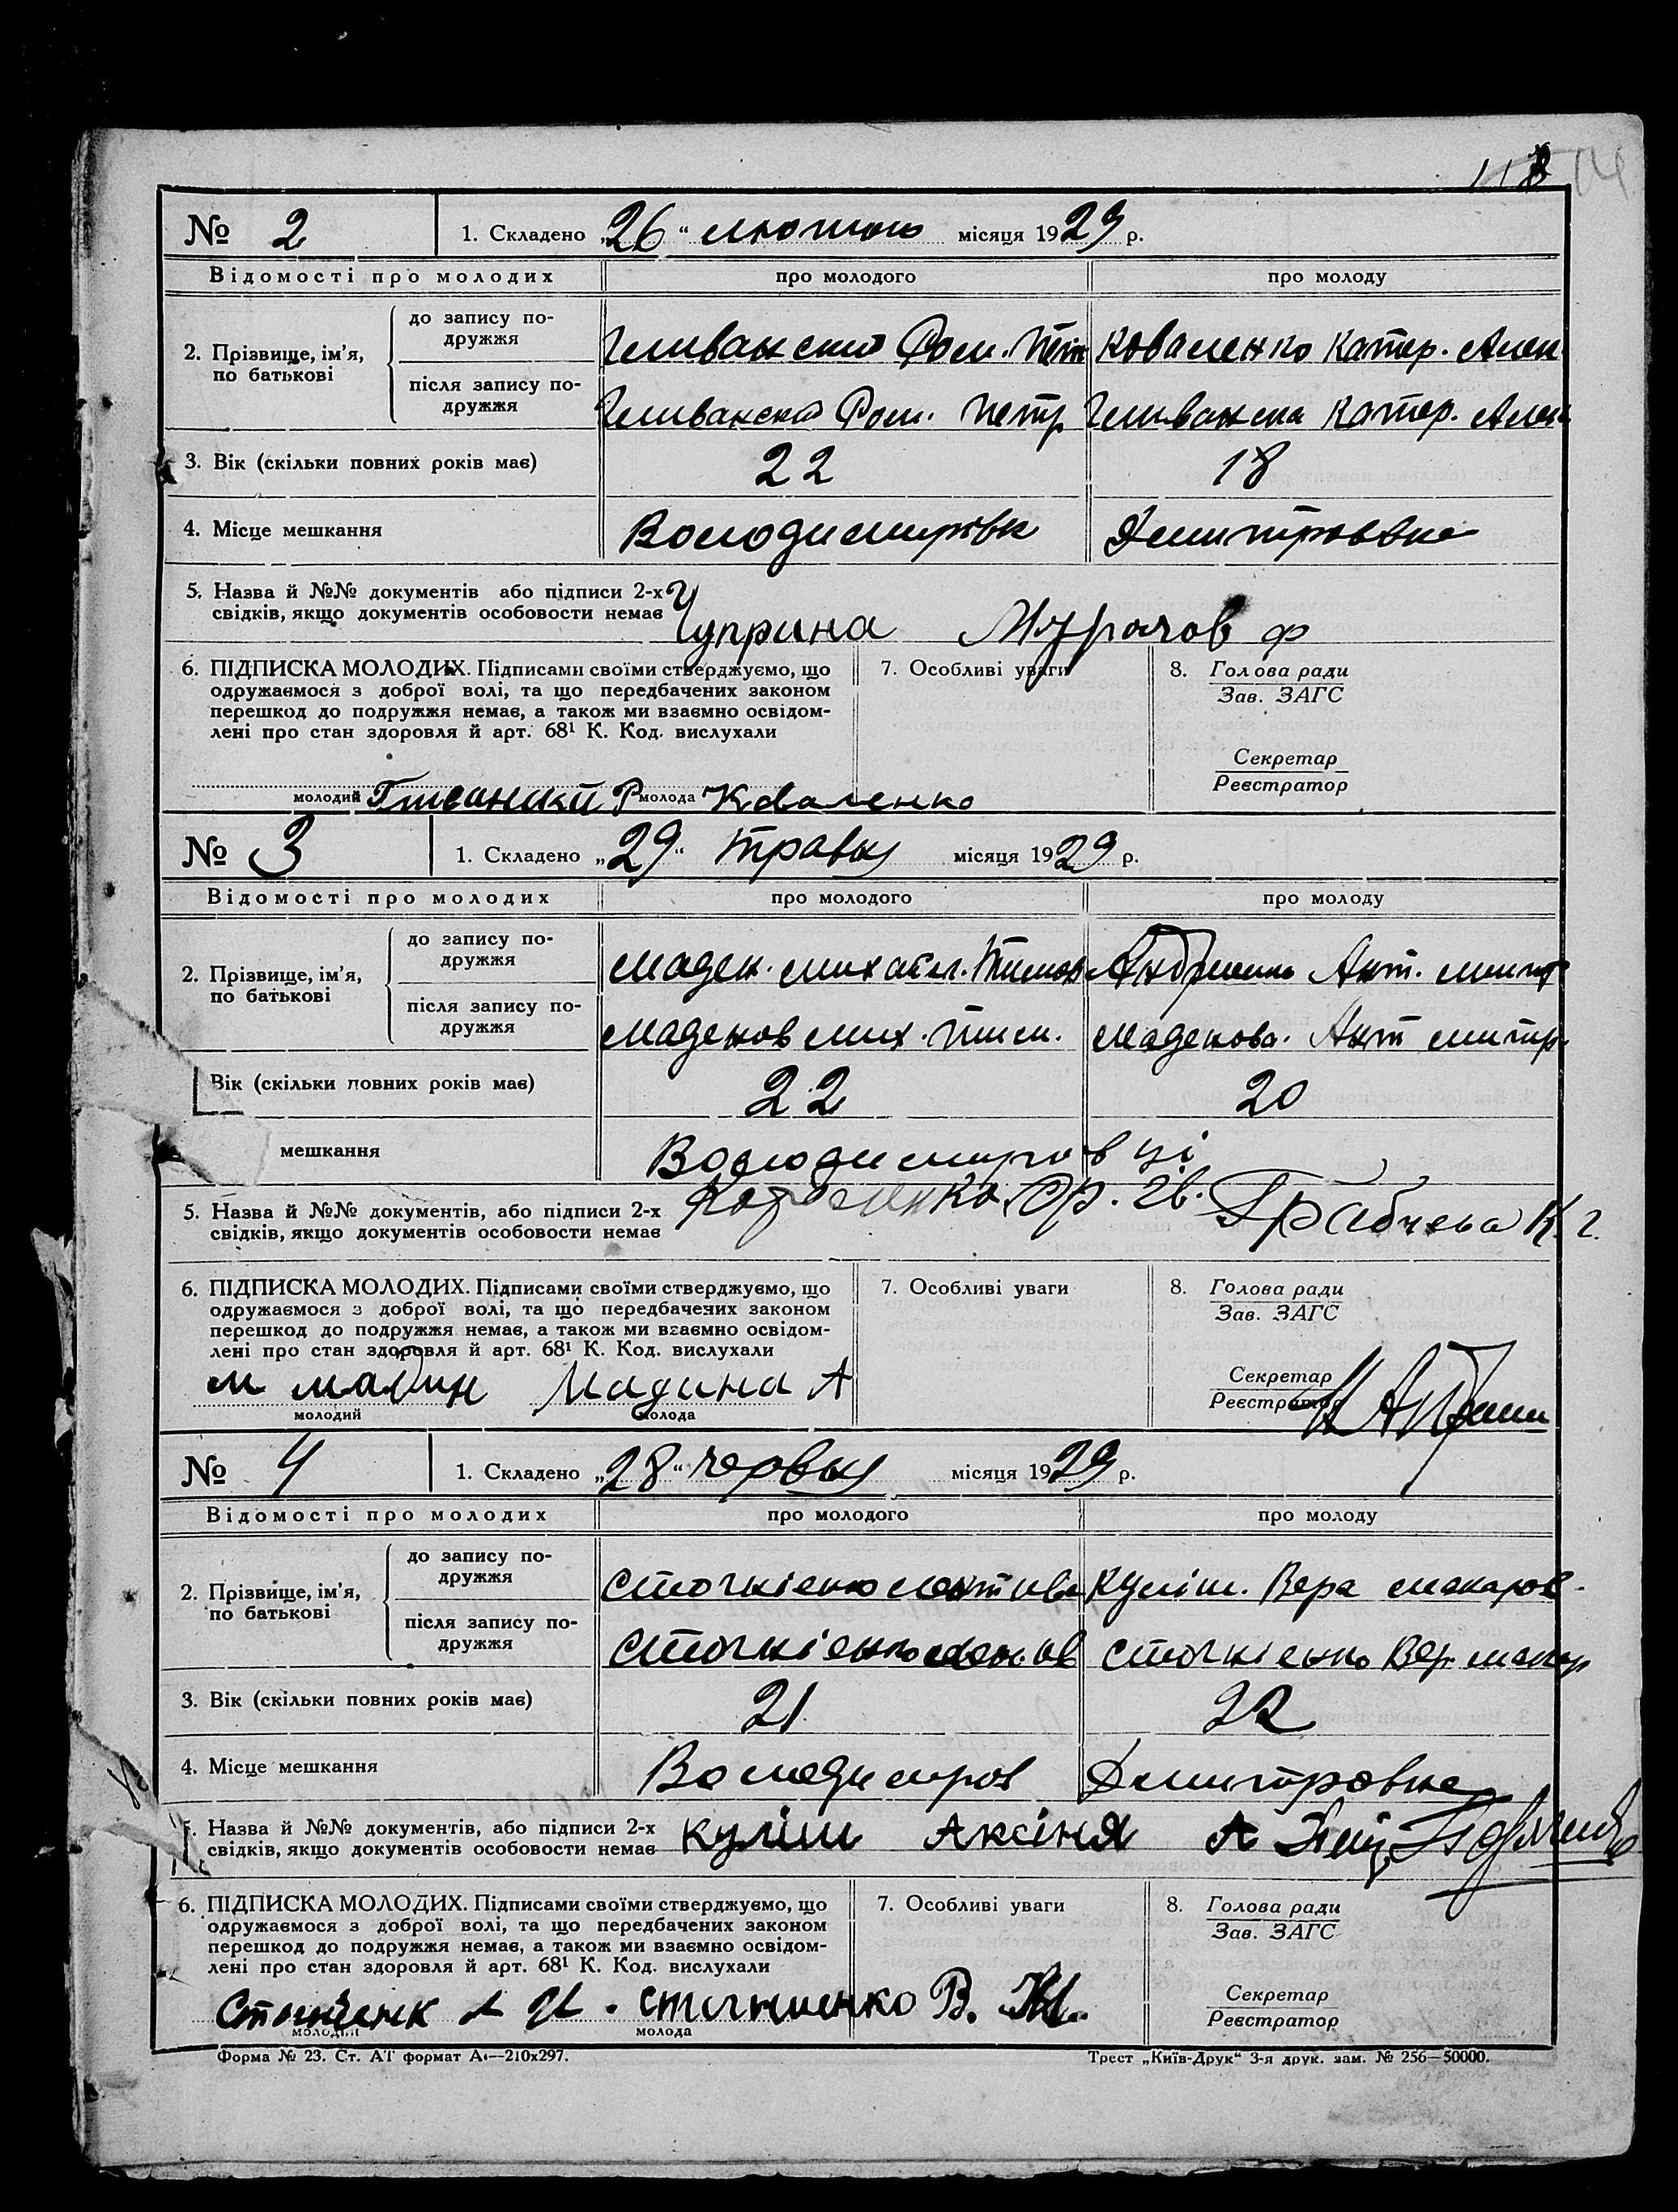 118 114
№ 2 1. Складено „26“ лютого місяця 1929 р.
Відомості про молодих про молодого про молоду
2. Прізвище, ім’я, по батькові
до запису подружжя Коваленко Катер. Алек
після запису подружжя Ром. Петр Катер. Алек
3. Вік (скільки повних років має) 22 18
4. Місце мешкання Володимирівк Дмитровка
5. Назва й №№ документів або підписи 2-х
свідків, якщо документів особовости немає Чуприна Ф
6. ПІДПИСКА МОЛОДИХ. Підписами своїми стверджуємо, що
одружаємося з доброї волі, та що передбачених законом
перешкод до подружжя немає, а також ми взаємно освідом-
лені про стан здоровля й арт. 68¹ К. Код. вислухали
7. Особливі уваги
8. Голова ради
Зав. ЗАГС
Секретар
Реєстратор
молодий Р молода Коваленко
№ 3 1. Складено „29“ травня місяця 1929 р.
Відомості про молодих про молодого про молоду
2. Прізвище, ім’я, по батькові
до запису подружжя Маден. Михаил. Тимоф Ант. Митр
після запису подружжя Маденов Мих. Тим. Маденова. Ант Митр.
Вік (скільки повних років має) 22 20
мешкання Володимировці
5. Назва й №№ документів, або підписи 2-х
свідків, якщо документів особовости немає К. Г.
6. ПІДПИСКА МОЛОДИХ. Підписами своїми стверджуємо, що
одружаємося з доброї волі, та що передбачених законом
перешкод до подружжя немає, а також ми взаємно освідом-
лені про стан здоровля й арт. 68¹ К. Код. вислухали
7. Особливі уваги
8. Голова ради
Зав. ЗАГС
Секретар
Реєстратор
м мадин Мадина А
молодий молода
№ 4 1. Складено „28“ червня місяця 1929 р.
Відомості про молодих про молодого про молоду
2. Прізвище, ім’я, по батькові
до запису подружжя Куліш. Вера Макаров.
після запису подружжя Вер. Макар
3. Вік (скільки повних років має) 21 22
4. Місце мешкання Володимиров Дмитровка
5. Назва й №№ документів, або підписи 2-х
свідків, якщо документів особовости немає Куліш Аксіня А
6. ПІДПИСКА МОЛОДИХ. Підписами своїми стверджуємо, що
одружаємося з доброї волі, та що передбачених законом
перешкод до подружжя немає, а також ми взаємно освідом-
лені про стан здоровля й арт. 68¹ К. Код. вислухали
7. Особливі уваги
8. Голова ради
Зав. ЗАГС
Секретар
Реєстратор
В. М.
молодий молода
Форма № 23. Ст. АТ формат А4—210х297. Трест „Київ-Друк“ 3-я друк. зам. № 256—50000.